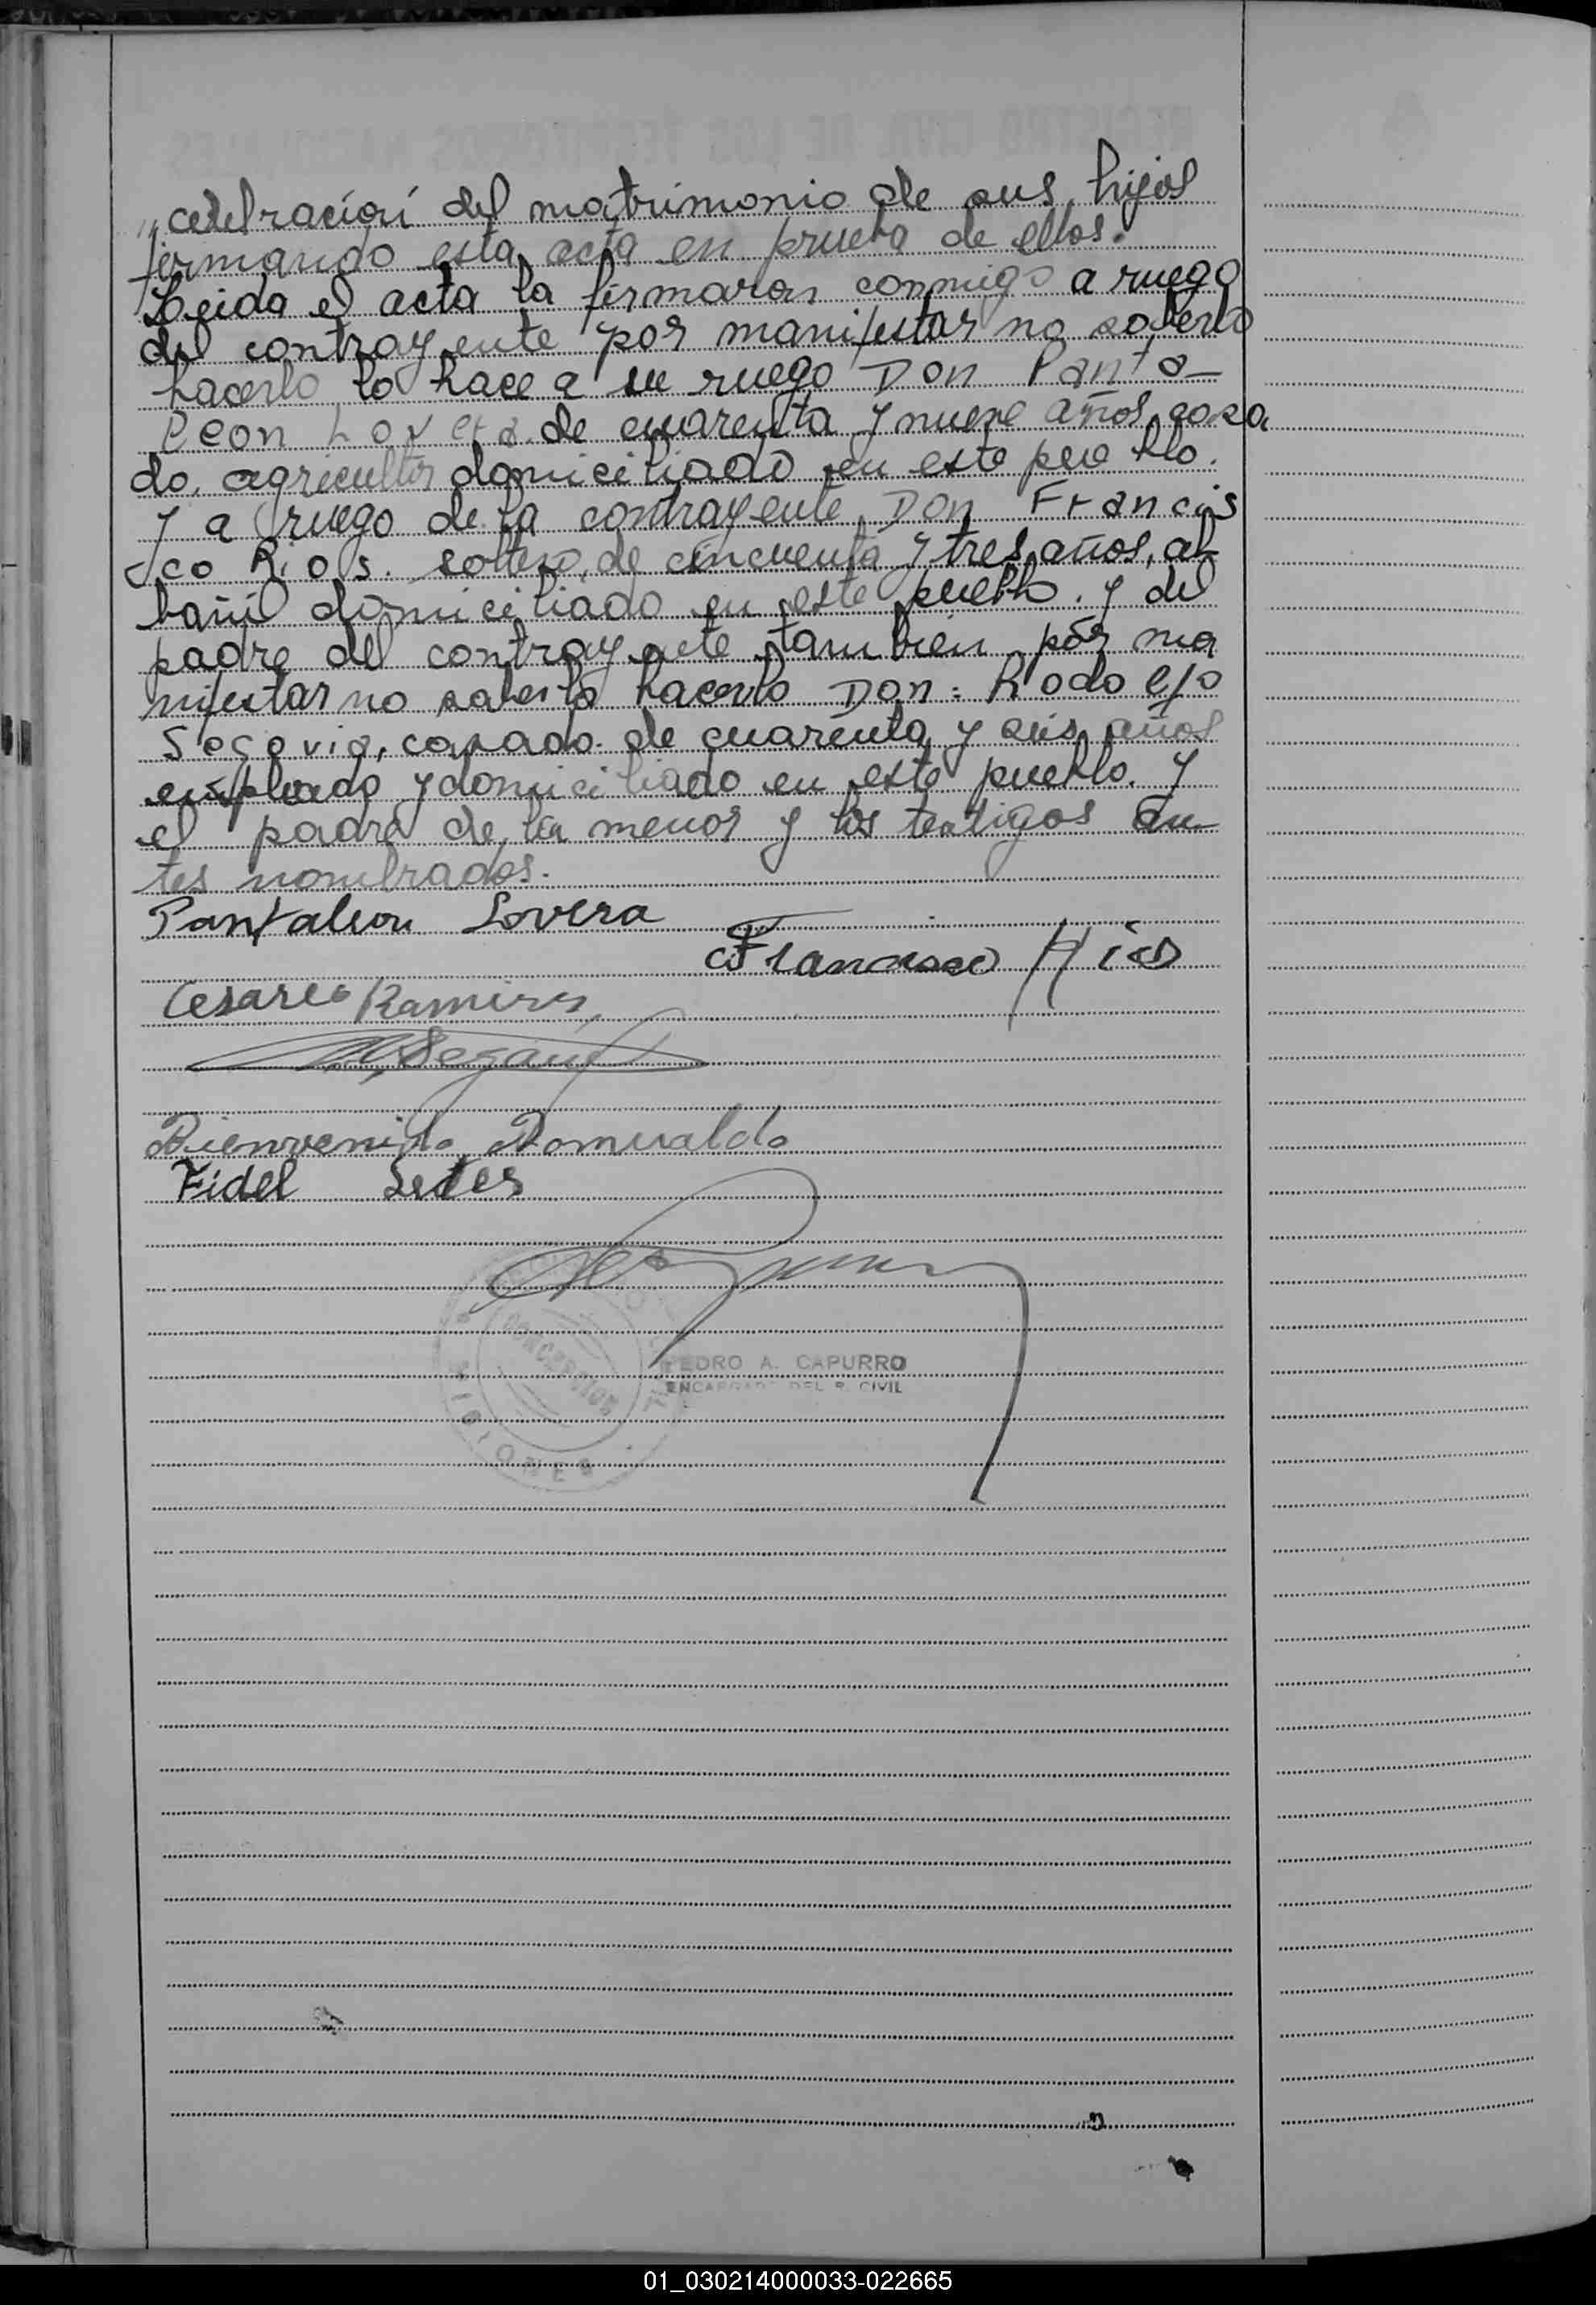 celebración del matrimonio de sus hijos
firmando esta acta en prueba de ellos.
Leida el acta la firmaron conmigo a ruego
del contrayente por manifestar no saberlo
hacerlo lo hace a su ruego Don Panta-
leon Lovera. de cuarenta y nueve años, casa
do, agricultor domiciliado en este pueblo.
y a ruego de la contrayente Don Francis
co Rios. soltero, de cincuenta y tres años, al-
bañil domiciliado en este pueblo. y del
padre del contrayente tambien por ma
nifestar no saberlo hacerlo Don: Rodolfo
Segovia, casado. de cuarenta y seis años
empleado y domiciliado en este pueblo. y
el padre de la menor y los testigos an
tes nombrados.
Pantaleon Lovera
Francisco Rios
Cesareo Ramirez
Bienvenido Romualdo
Fidel
CONCEPCION
MISIONES
PEDRO A. CAPURRO
ENCARGADO DEL R. CIVIL
01_030214000033-022665